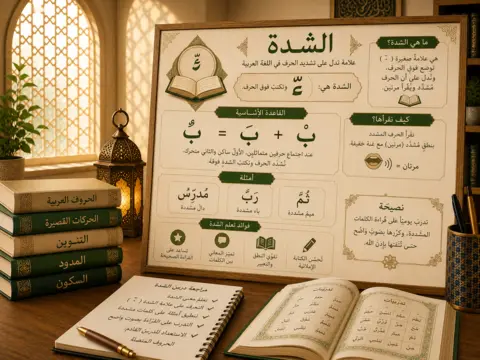 الشدة
علامة تدل على تشديد الحرف في اللغة العربية
الشدة هي:
وتكتب فوق الحرف
ما هي الشدة؟
هي علامة صغيرة ( ّ )
توضع فوق الحرف،
وتدل على أن الحرف
مُشدَّد ويُقرأ مرتين.
القاعدة الأساسية
بْ + بَ = بٌّ
عند اجتماع حرفين متماثلين، الأول ساكن والثاني متحرك،
تُشدد الحرف وتكتب الشدة فوقه
كيف نقرأها؟
نقرأ الحرف المشدد
بنطق مُشدَّد (مرتين) مع غنة خفيفة
= مرتان
أمثلة
ثُمَّ
ميم مشددة
رَبَّ
باء مشددة
مُدَرِّسٌ
مشددة
نصيحة
تدرب يومياً على قراءة الكلمات
المشددة، وكررها بصوت واضح
حتى تتقنها بإذن الله.
فوائد تعلم الشدة
تحسّن الكتابة
الإملائية
تقوّي النطق
والتعبير
تميّز المعاني
بين الكلمات
تساعد على
القراءة الصحيحة
الحروف العربية
الحركات القصيرة
التنوين
المدود
السكون
مراجعة درس الشدة
تدريبات
تدريبات